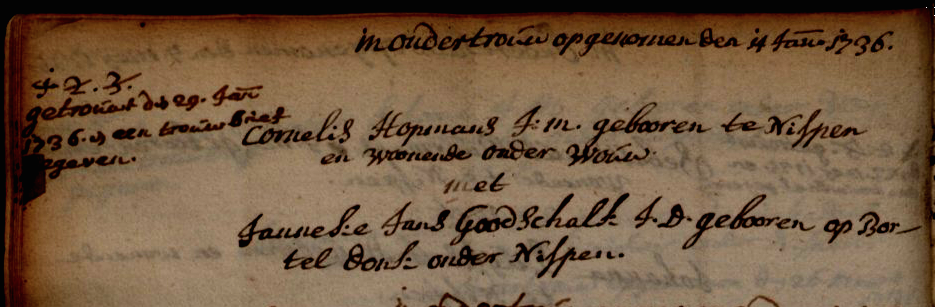 in ondertrouw opgenomen den 14 Jan: 1736.
1. 2. 3.
getrouwt den 29. Jan
1736. en een trouw brief
gegeven.
Cornelis Hopmans J: m. gebooren te Nispen
en woonende onder Wouw
met
Janneke Jans Goodschalk J. D. gebooren op Bor-
tel donk onder Nispen.